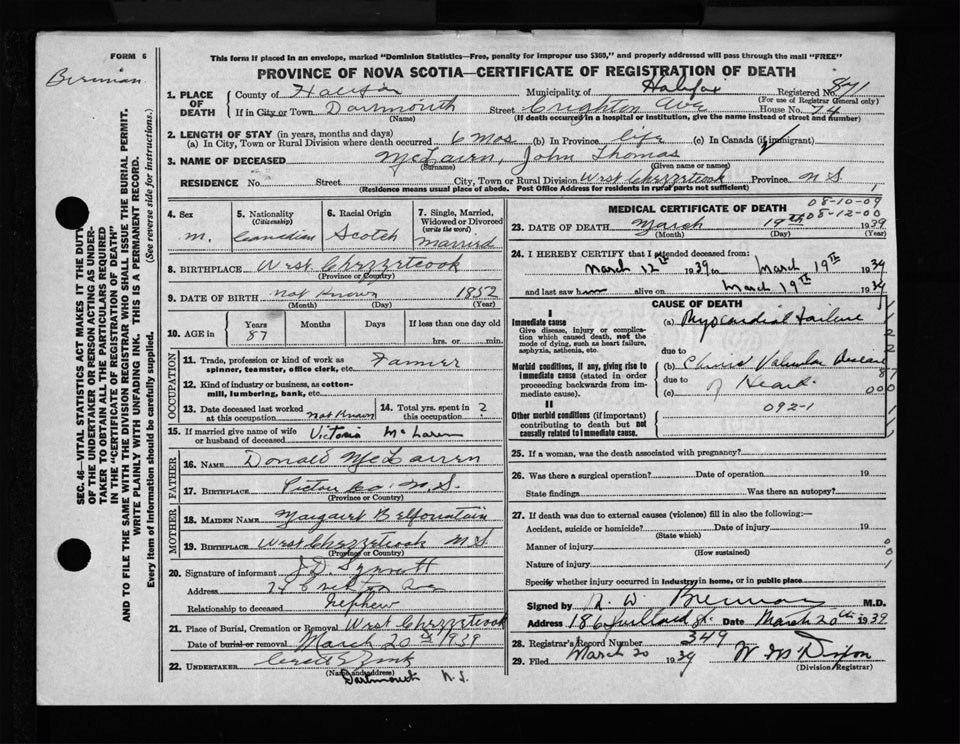 FORM 6
This form if placed in an envelope, marked "Dominion Statistics—Free, penalty for improper use $300," and properly addressed will pass through the mail "FREE"
PROVINCE OF NOVA SCOTIA—CERTIFICATE OF REGISTRATION OF DEATH
1. PLACE OF DEATH
County of Halifax Municipality of Halifax Registered No. 841
(For use of Registrar General only)
If in City or Town Dartmouth Street Crighton Ave House No. 74
(Name) (If death occurred in a hospital or institution, give the name instead of street and number)
2. LENGTH OF STAY (in years, months and days)
(a) In City, Town or Rural Division where death occurred 6 mos (b) In Province life (c) In Canada (if immigrant)
3. NAME OF DECEASED McLairn, John Thomas
(Surname) (Given name or names)
RESIDENCE No. Street City, Town or Rural Division West Chezzetcook Province N S. 1
(Residence means usual place of abode. Post Office Address for residents in rural parts not sufficient)
4. Sex
m.
5. Nationality
(Citizenship)
Canadian
6. Racial Origin
Scotch
7. Single, Married, Widowed or Divorced
(write the word)
Married
8. BIRTHPLACE West Chezzetcook
(Province or Country)
9. DATE OF BIRTH not Known 1852
(Month) (Day) (Year)
10. AGE in
Years Months Days If less than one day old
87 hrs. or min.
OCCUPATION
11. Trade, profession or kind of work as spinner, teamster, office clerk, etc. Farmer
12. Kind of industry or business, as cotton-mill, lumbering, bank, etc.
13. Date deceased last worked at this occupation not Known
14. Total yrs. spent in this occupation 2
15. If married give name of wife or husband of deceased Victoria McLaren
FATHER
16. NAME Donald McLairn
17. BIRTHPLACE Pictou Co. N. S.
(Province or Country)
MOTHER
18. MAIDEN NAME Margaret Belfountain
19. BIRTHPLACE West Chezzetcook N S
(Province or Country)
20. Signature of informant
Address 74
Relationship to deceased nephew
21. Place of Burial, Cremation or Removal West Chezzetcook
Date of burial or removal March 20th 1939
22. UNDERTAKER
(Name and address)
Dartmouth N. S.
MEDICAL CERTIFICATE OF DEATH
08-10-09
08-12-00
23. DATE OF DEATH March 19th 1939
(Month) (Day) (Year)
24. I HEREBY CERTIFY that I attended deceased from:
March 12th 1939 to March 19th 1939
and last saw him alive on March 19th 1939
CAUSE OF DEATH
I
Immediate cause
Give disease, injury or complication which caused death, not the mode of dying, such as heart failure, asphyxia, asthenia, etc.
(a) Myocardial Failure
due to
Morbid conditions, if any, giving rise to immediate cause (stated in order proceeding backwards from immediate cause).
(b) Chronic Valvular disease
due to of Heart.
(c)
II
Other morbid conditions (if important) contributing to death but not causally related to immediate cause.
092-1
25. If a woman, was the death associated with pregnancy?
26. Was there a surgical operation? Date of operation 19
State findings Was there an autopsy?
27. If death was due to external causes (violence) fill in also the following:—
Accident, suicide or homicide? Date of injury 19
(State which)
Manner of injury
(How sustained)
Nature of injury
Specify whether injury occurred in industry, in home, or in public place
Signed by M.D.
Address 186 Date March 20th 1939
28. Registrar's Record Number 349
29. Filed March 20 1939
(Division Registrar)
SEC. 46—VITAL STATISTICS ACT MAKES IT THE DUTY OF THE UNDERTAKER OR PERSON ACTING AS UNDERTAKER TO OBTAIN ALL THE PARTICULARS REQUIRED IN THE "CERTIFICATE OF REGISTRATION OF DEATH" AND TO FILE THE SAME WITH THE DIVISION REGISTRAR WHO SHALL ISSUE THE BURIAL PERMIT.
WRITE PLAINLY WITH UNFADING INK. THIS IS A PERMANENT RECORD.
Every item of information should be carefully supplied. (See reverse side for instructions.)